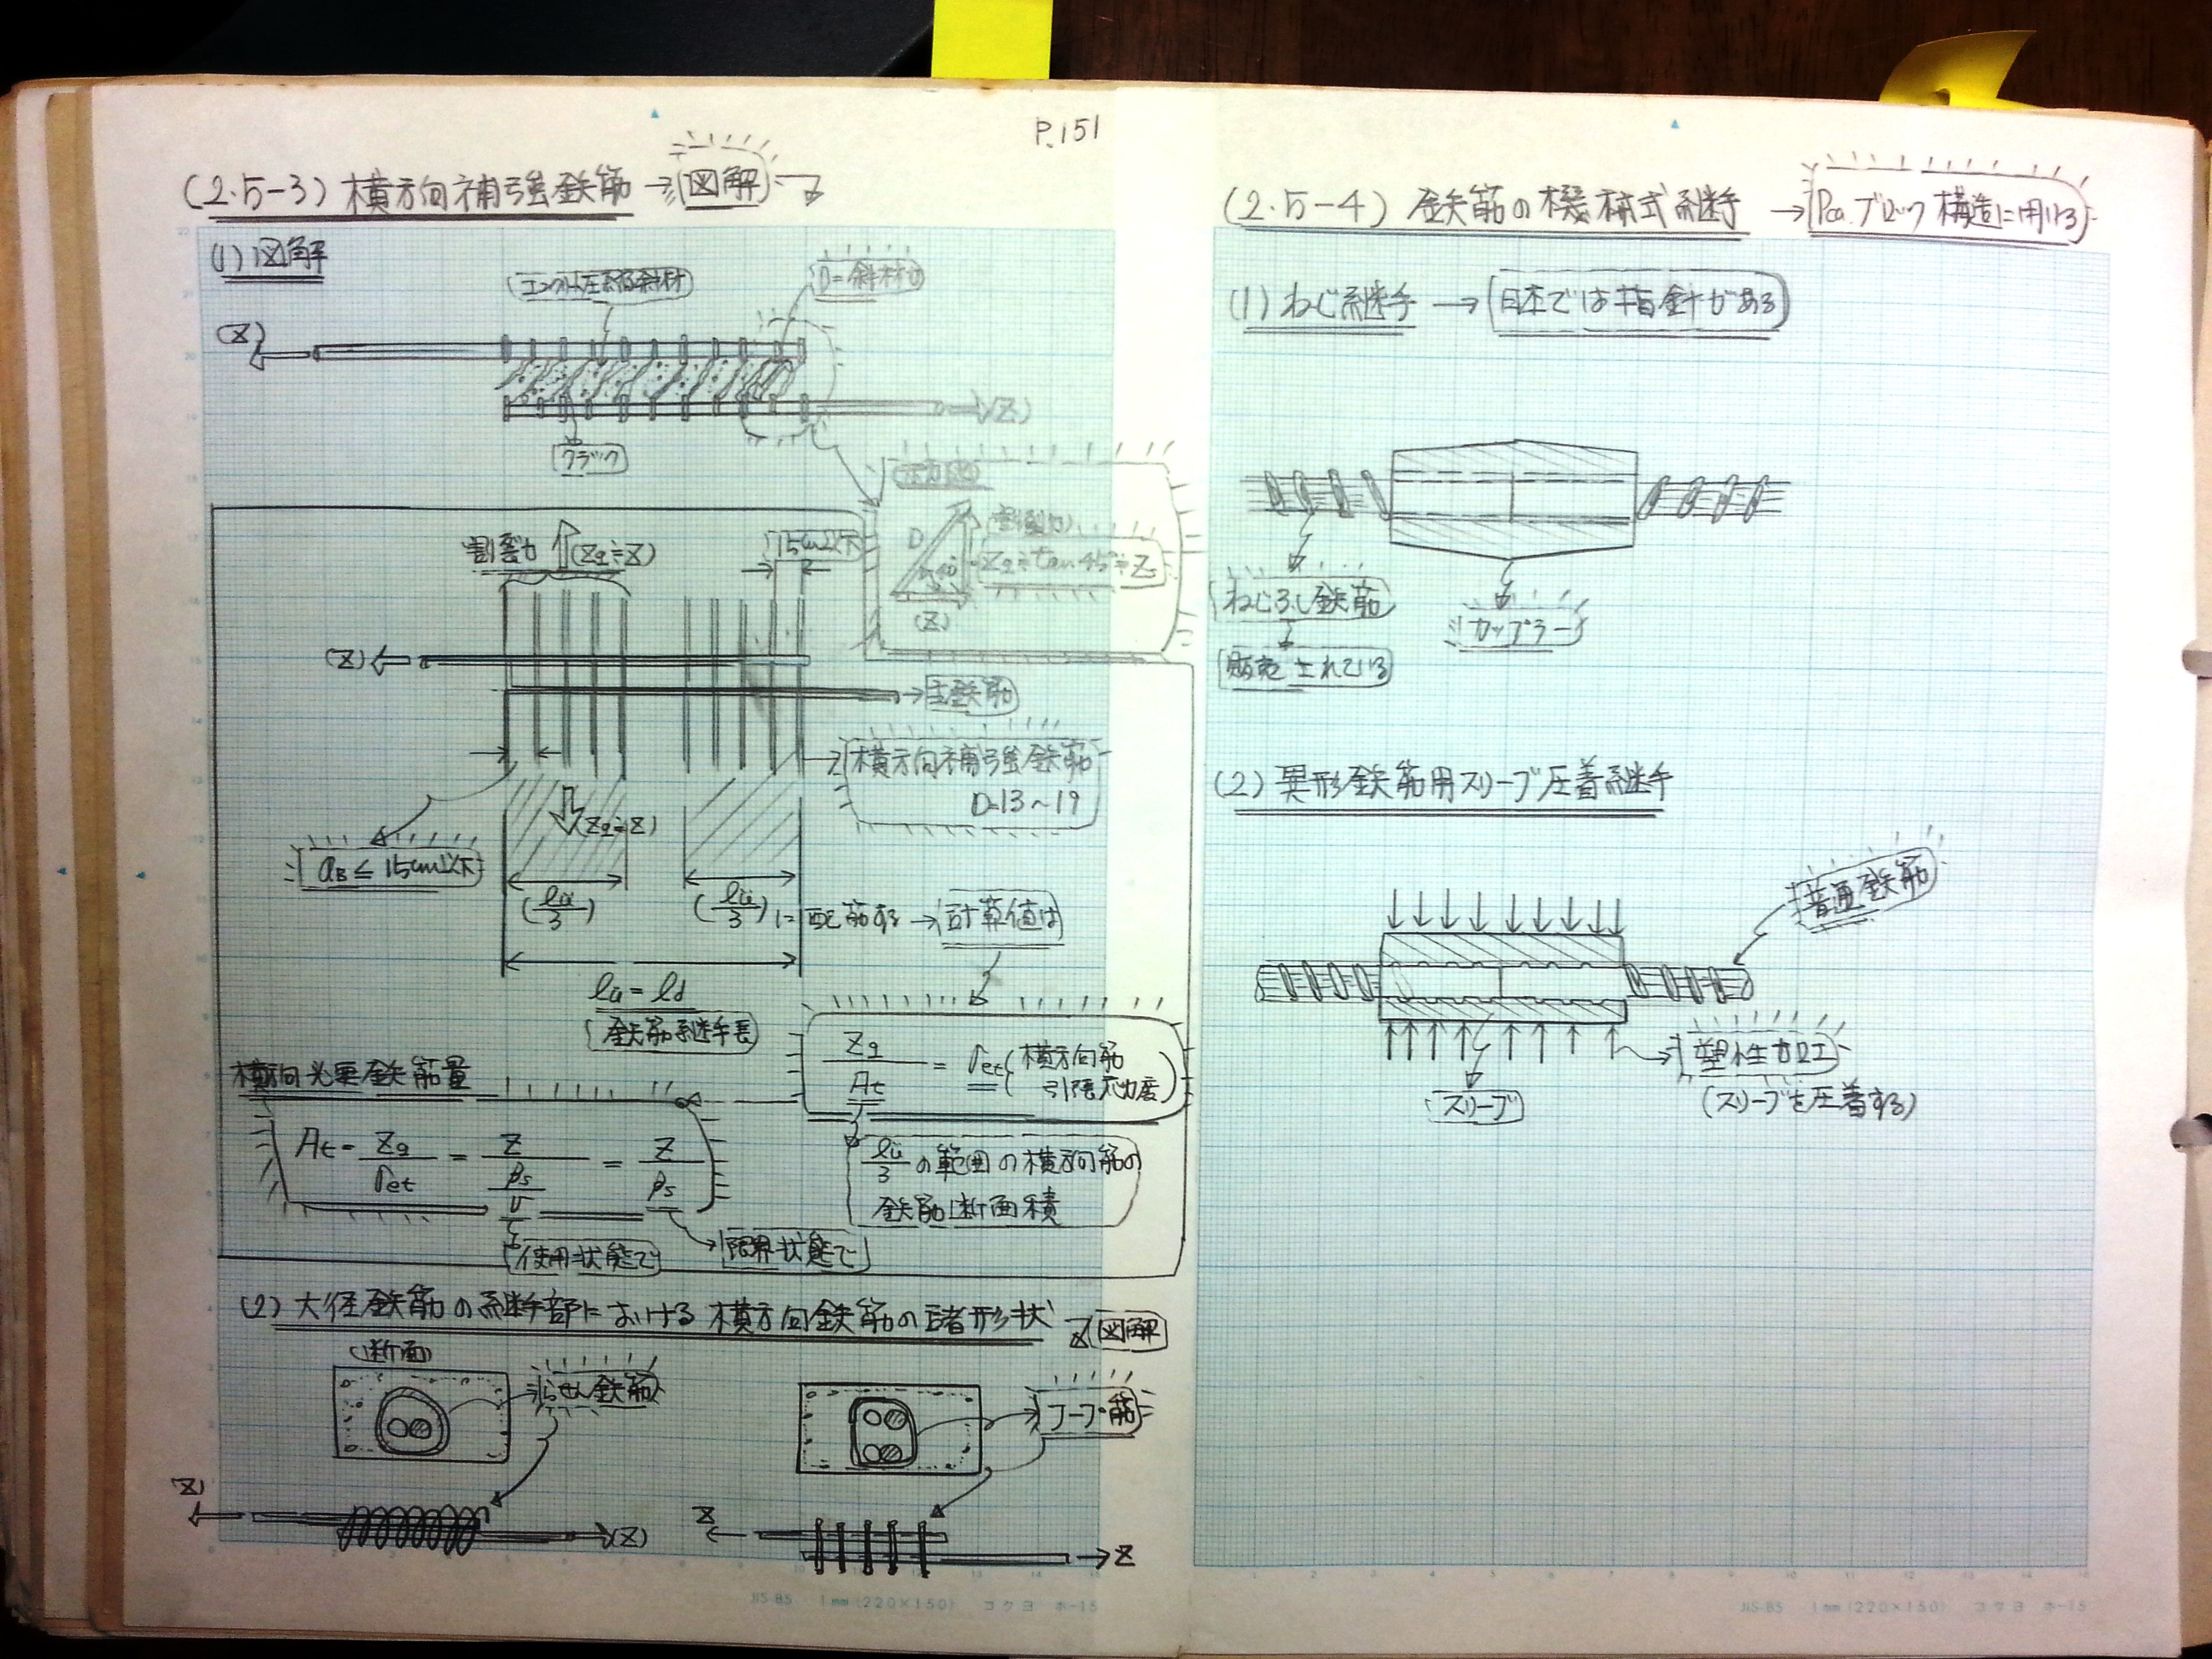 P.151
(2.5-3) 横方向補強鉄筋 → 図解
(1) 図解
D=斜材力
(Z)
(Z)
クラック
割裂力 (Zq≒Z)
15cm以下
D
(割裂力)
Zq≒tan45°≒Z
(Z)
(Z)
主鉄筋
横方向補強鉄筋
D=13~19
(Zq≒Z)
aB ≤ 15cm以下
(lü/3)
(lü/3) に配筋する → 計算値は
lü = ld
鉄筋継手長
Zq/At = σet (横方向筋引張応力度)
横方向必要鉄筋量
At = Zq/σet = Z/(βs/υ) = Z/βs
使用状態で
限界状態で
lü/3 の範囲の横方向筋の
鉄筋断面積
(2) 大径鉄筋の継手部における横方向鉄筋の諸形状
図解
(断面)
らせん鉄筋
フープ筋
(Z)
(Z)
Z
Z
JIS B5 1mm (220×150) コクヨ ホ-15
(2.5-4) 鉄筋の機械式継手 → Pca.ブロック構造に用いる
(1) ねじ継手 → 日本では指針がある
ねじふし鉄筋
カップラー
販売されている
(2) 異形鉄筋用スリーブ圧着継手
普通鉄筋
塑性加工
スリーブ
(スリーブを圧着する)
JIS B5 1mm (220×150) コクヨ ホ-15